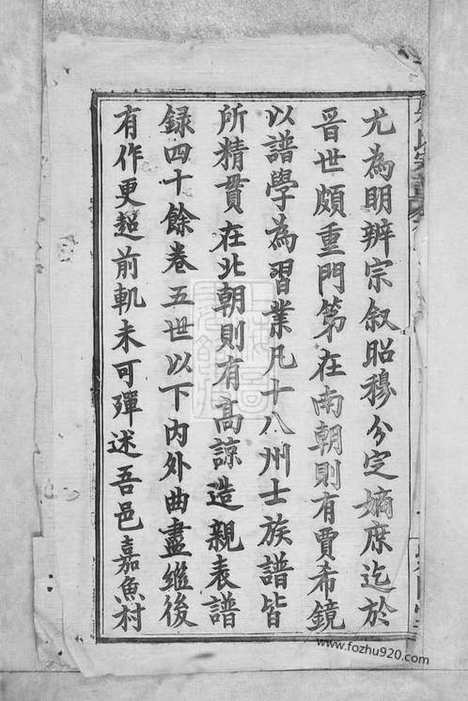 尤為明辨宗叙昭穆分定嫡庶迄於
晉世頗重門第在南朝則有賈希鏡
以譜學為習業凡十八州士族譜皆
所精貫在北朝則有高諒造親表譜
錄四十餘卷五世以下內外曲盡繼後
有作更超前軌未可殫述吾邑嘉魚村
www.fozhu920.com